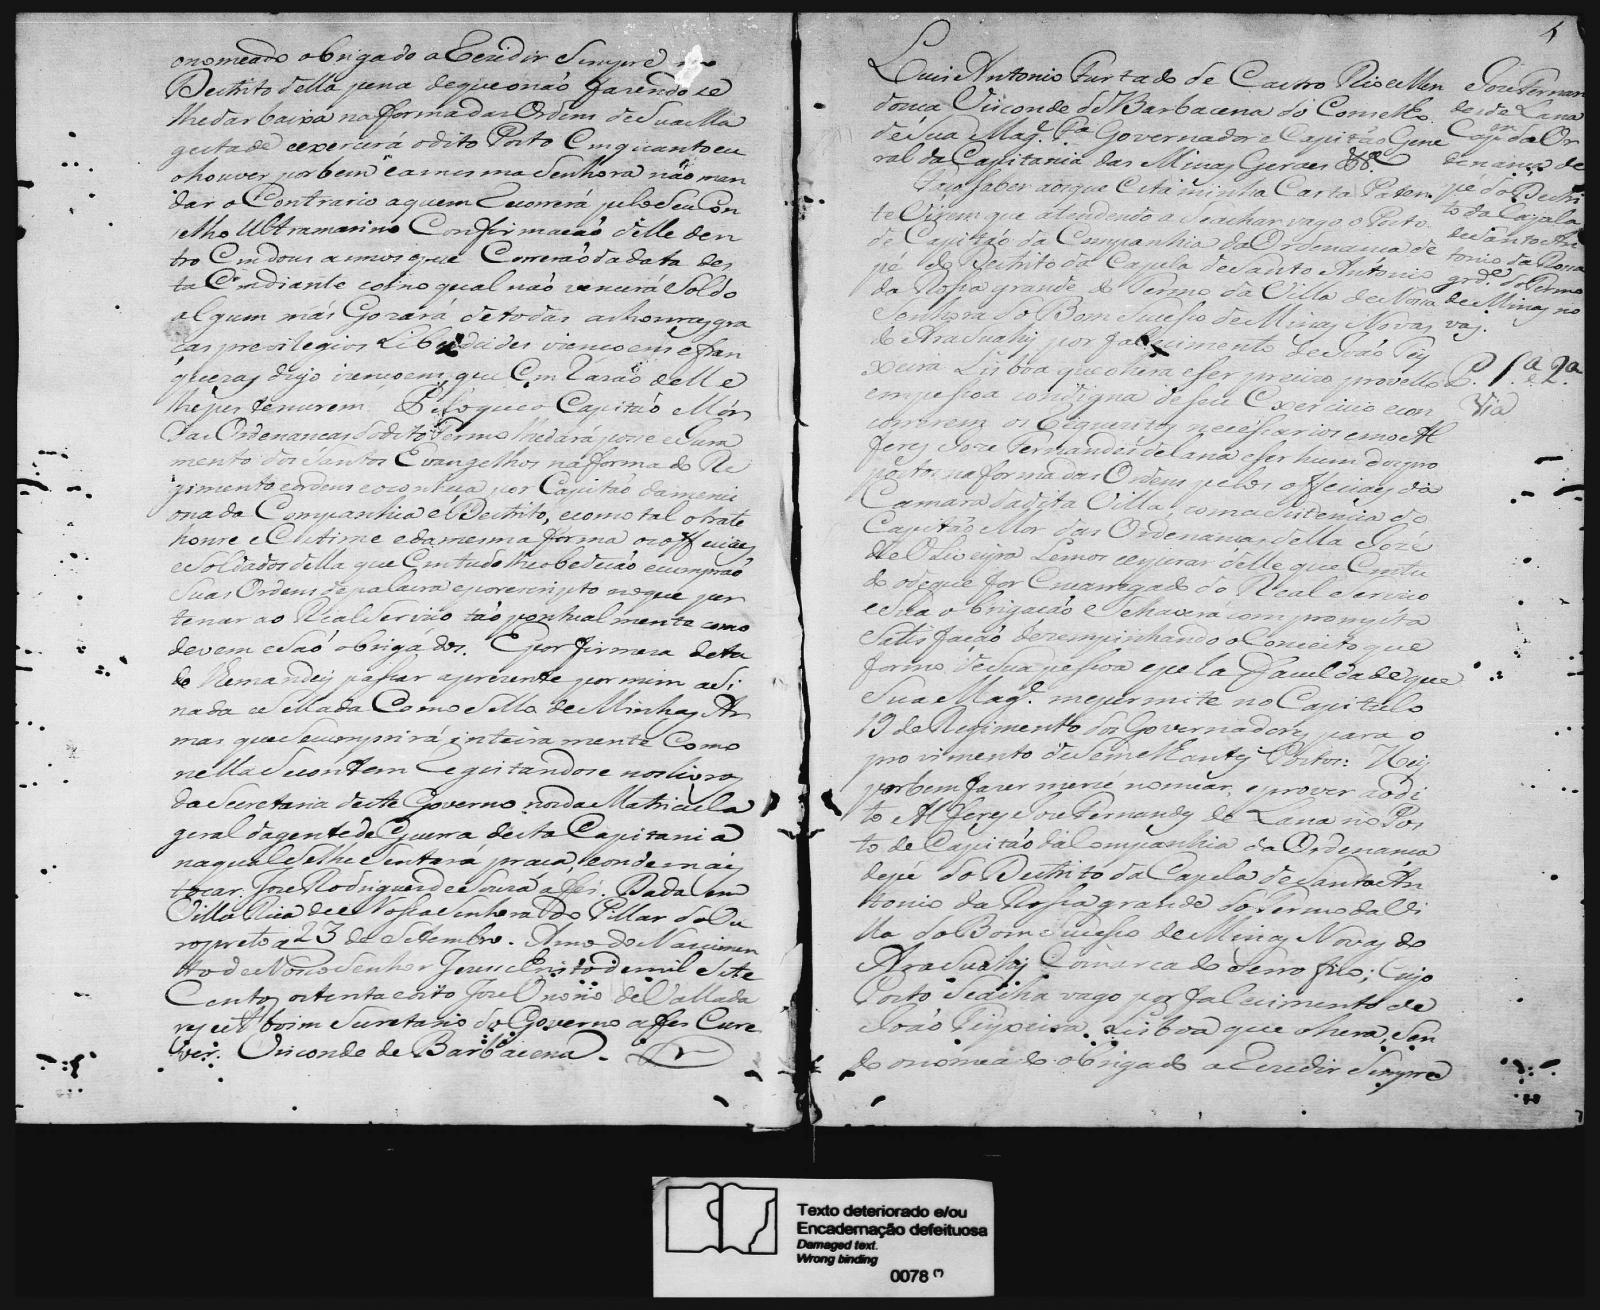 onomeado obrigado a Rezidir Sempre no
Destrito della pena de que o não fazendo se
lhe dar baixa na forma das Ordens de Sua Ma
gestade e exercerá o dito Posto Emquanto eu
o houver por bem e a mesma Senhora não man
dar o Contrario a quem Recorrerá pelo Seu Con
selho Ultramarino Confirmação delle den
tro Em dous annos que Correrão da data des
ta Em diante com o qual não vencerá Soldo
algum mas Gozará de todas as honras gra
ças previlegios Liberdades izençoens e fran
quezas digo izençoens, que Em Razão delle
lhe pertencerem. Pelo que o Capitão Mór
das Ordenanças do dito Termo lhe dará posse e Jura
mento dos Santos Evangelhos na forma do Re
gimento e ordens e o conheça por Capitão da menci
onada Companhia e Destrito, e como tal o trate
honre e Estime e da mesma forma os officiaes
e Soldados della que Em tudo lhe obedeção e cumprão
Suas Ordens de palavra e por escripto no que per
tencer ao Real Serviço tão pontualmente como
devem e São obrigados. E por firmeza de tu
do lhe mandey passar a prezente por mim asi
nada e Sellada Com o Sello de Minhas Ar
mas que Se cumprirá inteiramente Como
nella Se contem Registandose nos livros
da Secretaria deste Governo no da Matricula
geral da gente de Guerra desta Capitania
na qual Se lhe Sentará praça, e onde mais
tocar. Joze Rodrigues de Souza a fes. Dada em
Villa Rica de Nossa Senhora do Pillar do Ou
ro preto a 23 de Setembro. Anno do Nascimen
to de Nosso Senhor Jesus Cristo de mil Sete
Centos oitenta e oito Joze Onorio de Vallada
res e Aboim Secretario do Governo a fes Escre
ver. Visconde de Barbacena.
Luis Antonio Furtado de Castro Rio e Men
donça Visconde de Barbacena do Conselho
de Sua Mag.e F.a Governador e Capitão Gene
ral da Capitania das Minas Geraes &.ª
Faço Saber aos que Esta minha Carta Paten
te Virem que atendendo a Seachar vago o Posto
de Capitão da Companhia da Ordenança de
pé do Destrito da Capela de Santo Antonio
da Rossa grande do Termo da Villa de Nossa
Senhora do Bom Sucesso de Minas Novas
do Arasuahy por falecimento de João Tey
xeira Lisboa que o hera e ser precizo provello
em pessoa condigna de seu Exercicio e con
correrem os Requezitos necessarios em o Al
feres Joze Fernandes de Lana e ser hum dos pro
postos na forma das Ordens pelos officiaes da
Camara da dita Villa, com asistencia do
Capitão Mor das Ordenanças della Jozé
de Oliveyra Lemos e esperar delle que Em tu
do o de que for Encarregado do Real Serviço
e Sua obrigação Se haverá com prompta
Satisfação dezempenhando o Conceito que
formo de Sua pessoa e pela Faculdade que
Sua Mag.e me permite no Capitulo
19 do Regimento dos Governadores para o
provimento de Semelhantes Postos: Hey
por bem fazer mercê nomear, e prover ao di
to Alferes Joze Fernandes de Lana no Pos
to de Capitão da Companhia da Ordenança
de pé do Destrito da Capela de Santo An
tonio da Rossa grande do Termo da Vi
lla do Bom Sucesso de Minas Novas do
Arasuahy Comarca do Serro frio; Cujo
Posto Se acha vago por falecimento de
João Teyxeira Lisboa que o hera, Sen
do o nomeado obrigado a Rezidir Sempre
Joze Fernan
des de Lana
Cap.m da Or
denança de
pé do Destri
to da Capela
de Santo An
tonio da Rossa
grd.e do Termo
de Minas no
vas.
P. 1.ª e 2.ª
Via
Texto deteriorado e/ou
Encadernação defeituosa
Damaged text.
Wrong binding
0078 (*)